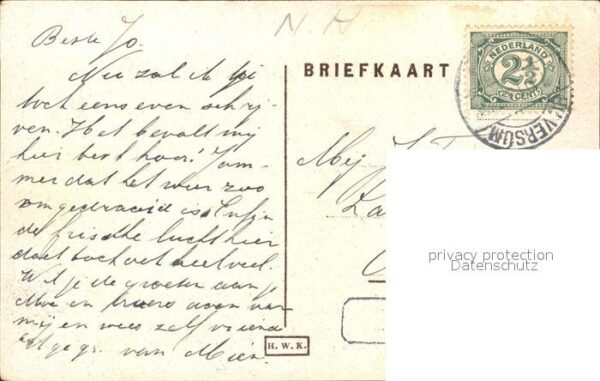 N. H
Beste Jo.
Nu zal ik je
toch eens even schrij
ven. Het bevalt mij
hier best hoor! Jam-
mer dat het weer zoo
omgedraaid is. Enfin
de frissche lucht hier
doet toch ook heel veel.
Wil je de groeten aan je
Moe en broers doen van
mij en wees zelf vriend
gegr. van Mien.
BRIEFKAART
NEDERLAND
2½
2½ CENT
VERSUM
Mej
H. W. K.
privacy protection
Datenschutz